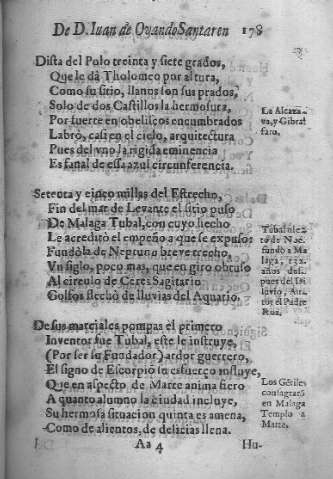 De D. Iuan de Ovando Santaren 178
Dista del Polo treinta y siete grados,
Que le dà Tholomeo por altura,
Como su sitio, llanos son sus prados,
Solo de dos Castillos la hermosura,
Por fuerte en obeliscos encumbrados
Labrò, casi en el cielo, arquitectura
Pues del vno la rigida eminencia
Es fanal de essa azul circunferencia.
La Alcaza-
va, y Gibral
faro.
Setenta y cinco millas del Estrecho,
Fin del mar de Levante el sitio puso
De Malaga Tubal, con cuyo hecho
Le acreditò el empeño a que se expuso:
Fundòla de Neptuno breve trecho,
Vn siglo, poco mas, que en giro obtuso
Al circulo de Ceres Sagitario
Golfos flechò de lluvias del Aquario.
Tubal nie-
to de Noe,
fundò a Ma
laga,
años des-
pues del Di
luvio, Au-
tor el Padre
Roa.
De sus materiales pompas el primero
Inventor fue Tubal, este le instruye,
(Por ser su Fundador) ardor guerrero,
El signo de Escorpio su esfuerço influye,
Que en aspecto de Marte anima fiero
A quanto alumno la ciudad incluye,
Su hermosa situacion quinta es amena,
Como de alientos, de delicias llena.
Los Gētiles
consagrarō
en Malaga
Templo a
Marte.
Aa 4 Hu-